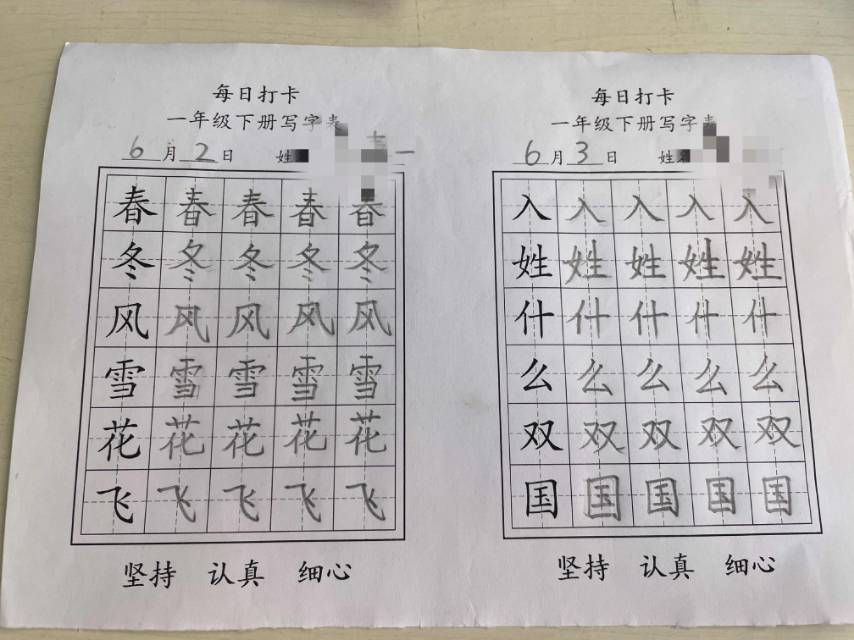 每日打卡
一年级下册写字表
6月2日 姓
春春春春春
冬冬冬冬冬
风风风风风
雪雪雪雪雪
花花花花花
飞飞飞飞飞
坚持 认真 细心
每日打卡
一年级下册写字表
6月3日 姓名
入入入入入
姓姓姓姓姓
什什什什什
么么么么么
双双双双双
国国国国国
坚持 认真 细心